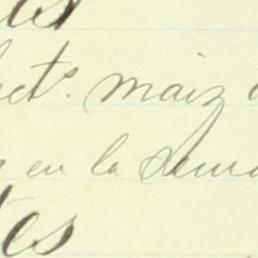 es
cts. maiz
en la sema
tes